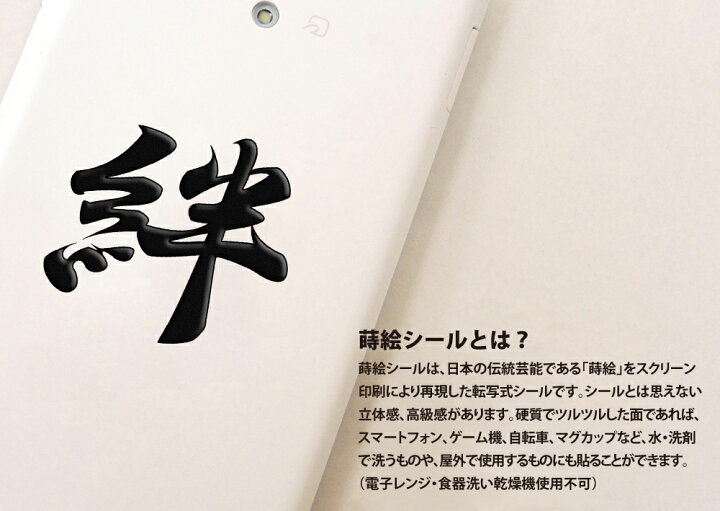 絆
蒔絵シールとは？
蒔絵シールは、日本の伝統芸能である「蒔絵」をスクリーン
印刷により再現した転写式シールです。シールとは思えない
立体感、高級感があります。硬質でツルツルした面であれば、
スマートフォン、ゲーム機、自転車、マグカップなど、水・洗剤
で洗うものや、屋外で使用するものにも貼ることができます。
（電子レンジ・食器洗い乾燥機使用不可）